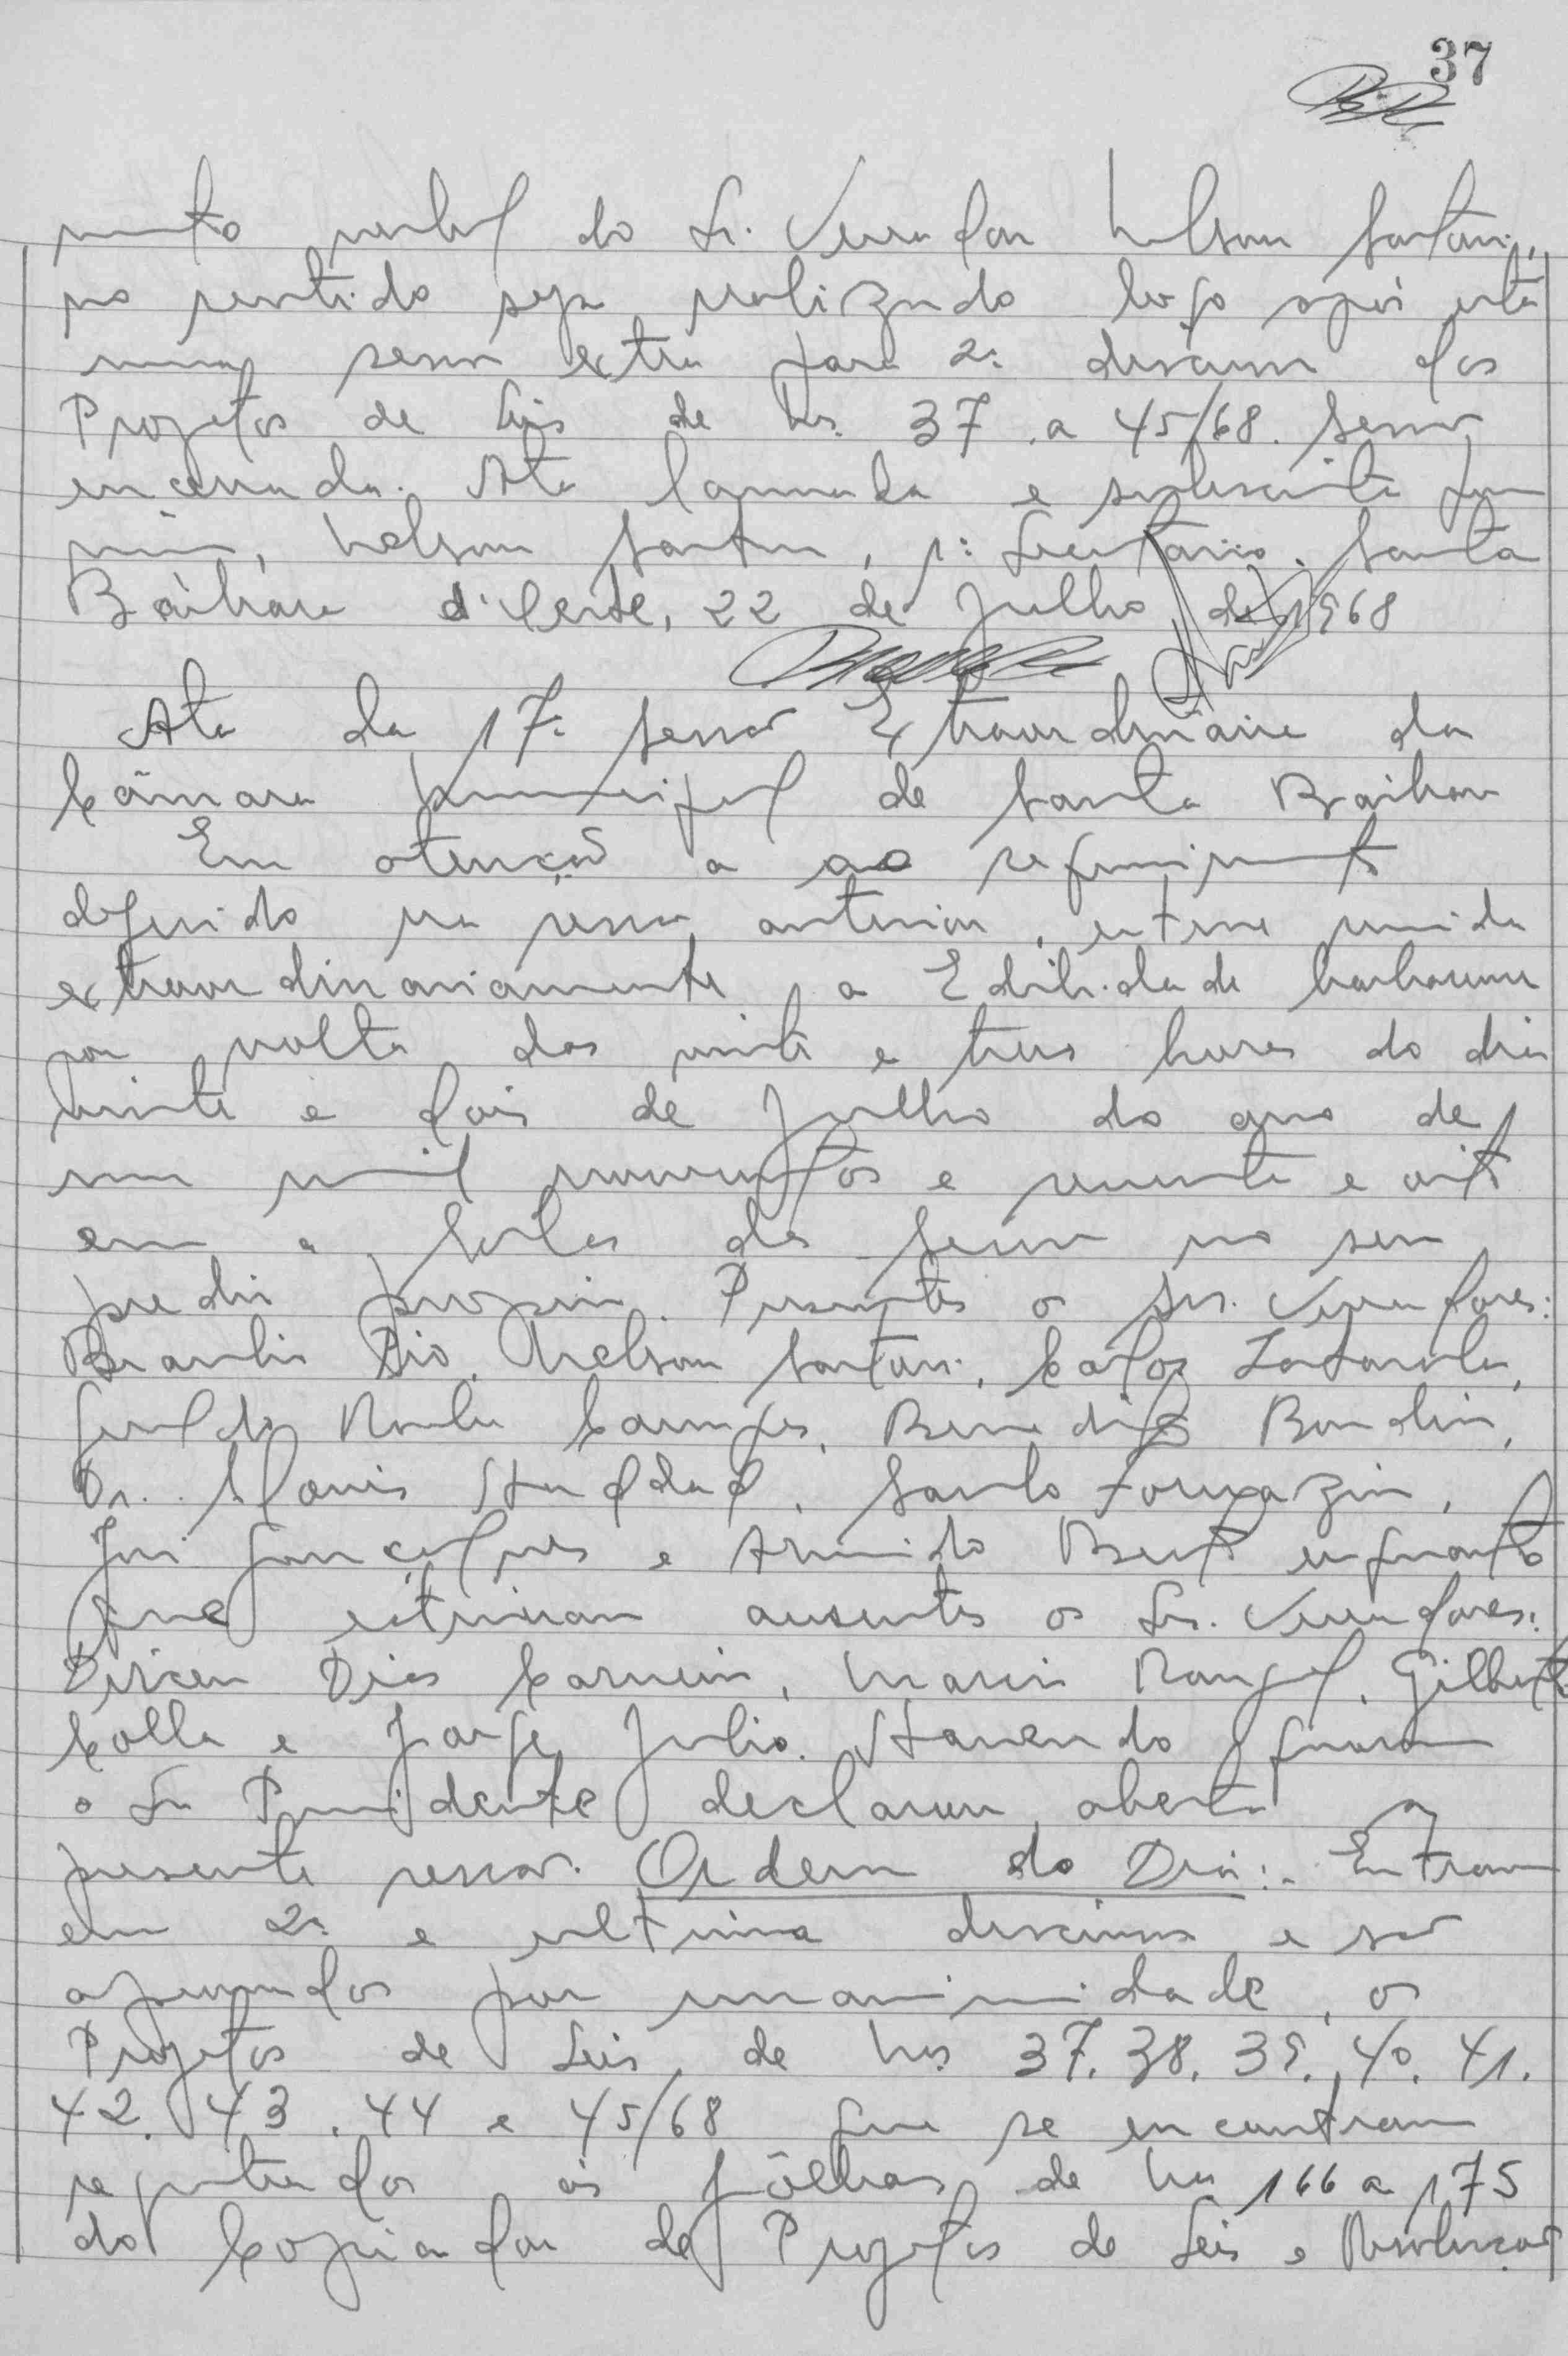 37
mento verbal do Sr. Vereador Nelson Sartori,
no sentido seja realizada logo após esta
uma sessão extra para 2ª discussão dos
Projetos de Leis de Nrs. 37 a 45/68. Sessão
encerrada. Ata lavrada e subscrita por
mim, Nelson Sartori, 1º Secretario. Santa
Bárbara d'Oeste, 22 de Julho de 1968
Ata da 17ª Sessão Extraordinária da
Câmara Municipal de Santa Barbara
Em atenção a ao requerimento
deferido na sessão anterior, esteve reunida
extraordinariamente, a Edilidade barbarense
por volta das vinte e tres horas do dia
vinte e dois de Julho do ano de
um mil novecentos e sessenta e oito
em a Sala das Sessões no seu
predio proprio. Presentes os Srs. Vereadores:
Braulio Pio, Nelson Sartori, Carlos
Geraldo Rocha Campos, Benedito
Dr. Haddad, Santo Formazin,
José Gonçalves e Arnaldo enquanto
que estiveram ausentes os Srs. Vereadores:
Dirceu Dias Carneiro, Mario Rangel, Gilberto
Colla e Jorge Julio. Havendo quorum
o Sr Presidente declarou aberta a
presente sessão. Ordem do Dia:- Entram
em 2ª e ultima discussão e são
aprovados por unanimidade, os
Projetos de Leis, de Nrs 37. 38. 39. 40. 41.
42. 43. 44 e 45/68 que se encontram
registrados ás fôlhas de Nrs 166 a 175
do Copiador de Projetos de Leis e Resoluções